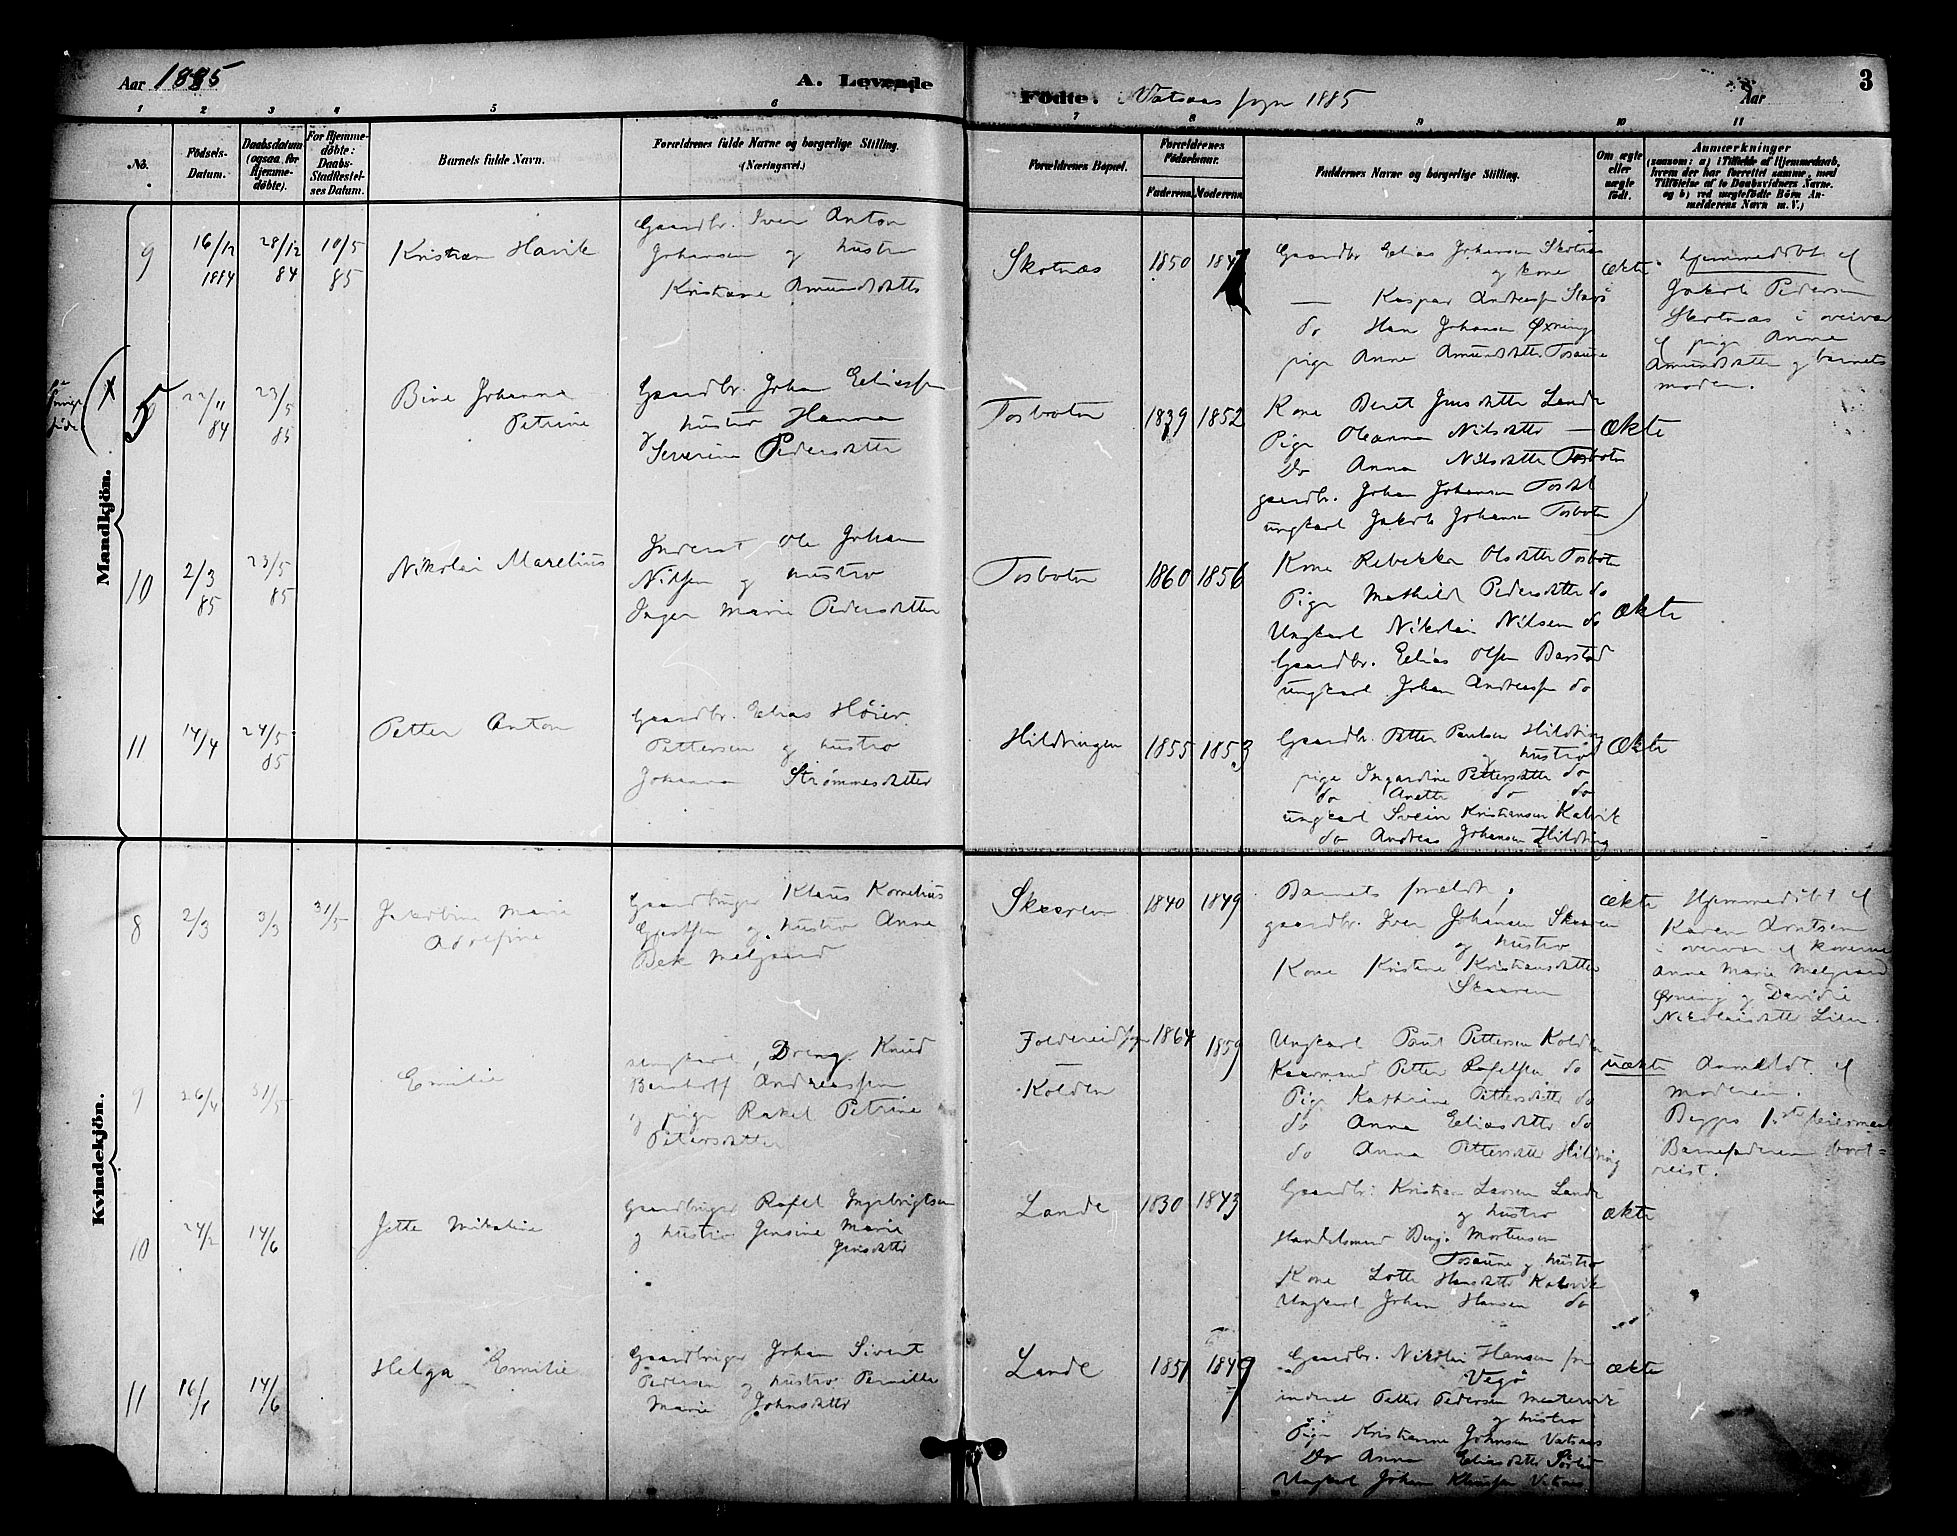 Aar 1885
A. Levende
Födte. i Vatsaas sogn 1885
Aar
3
1 2 3 4 5 6 7 8 9 10 11
No.
Födsels-Datum.
Daabsdatum (ogsaa for Hjemmedöbte).
For Hjemmedöbte: Daabs-Stadfæstelses Datum.
Barnets fulde Navn.
Forældrenes fulde Navne og borgerlige Stilling. (Næringsvei.)
Forældrenes Bopæl.
Forældrenes Födselsaar.
Faderens. Moderens.
Faddernes Navne og borgerlige Stilling.
Om ægte eller uægte födt.
Anmærkninger
(saasom: a) i Tilfælde af Hjemmedaab,
hvem der har forrettet samme, med
Tilföielse af to Daabsvidners Navne.
og b) ved uægtefödte Börn An-
melderens Navn m. V.)
Mandkjön.
9 16/12 1884 28/12 84 10/5 85
Kristian Havik
Gaardbr. Iver Anton
Johansen og hustru
Kristiane Amundsdatter
Skotnæs 1850
Gaardbr Elias Johansen Skotnæs
og kone
— Kaspar Andreassen
do Hans Johansen Øxning
pige Anna Amundsdatter Tosaune
ækte
Hjemmedøbt af
Jakob Pedersen
Skotnæs i overvær
af pige Anna
Amundsdatter og barnets
moder.
5 22/11 84 23/5 85
Bine Johanna
Petrine
Gaardbr. Johan Eliassen
og hustru Hanna
Severine Pedersdatter
Tosboten 1839 1852
Kone Beret Jensdatter Lande
Pige Oleanna Nilsdatter —
Do Anna Nilsdatter Tosboten
gaardbr. Johan Johansen Tosdal
ungkarl Jakob Johansen Tosboten
ækte
10 2/3 85 23/5 85
Nikolai Marelius
Inderst Ole Johan
Nilsen og hustru
Inger Marie Pedersdatter
Tosboten 1860 1856
Kone Rebekka Olsdatter Tosboten
Pige Mathilde Pedersdatter do
Ungkarl Nikolai Nilsen do
Gaardbr. Elias Olsen Barstad
ungkarl Johan Andreassen do
ækte
11 14/4 24/5 85
Petter Anton
Gaardbr. Elias Høier
Pettersen og hustru
Johanna Strømmesdatter
Hildringen 1855 1853
Gaardbr. Petter Paulsen Hildring
og hustru
pige Ingardine Pettersdatter do
do Anette do do
ungkarl Svein Kristiansen Kalvik
do Andreas Johansen Hildring
ækte
Kvindekjön.
8 2/3 3/3 31/5
Jakobine Marie
Adolfine
Gaardbruger Klaus Kornelius
Gjertsen og hustru Anne
Bek Melgaard
Skaaren 1840 1849
Barnets forældre
gaardbr. Iver Johansen Skaaren
og hustru
Kone Kristine Kristiansdatter
Skaaren
ækte
Hjemmedøbt af
Karen Arntsen
i overvær af konerne
Anne Marie Melgaard
Øxning og Davidie
Nikolaisdatter Lien.
9 26/4 31/5
Emilie
ungkarl, Dreng Knud
Bernhoff Andreassen
og pige Rakel Petrine
Petersdatter
Foldereid sogn
Kolden
1864 1859
Ungkarl Paul Pettersen Kolden
Kaarmand Petter Rafelsen do
Pige Kathrine Pettersdatter do
do Anna Eliasdatter do
do Anna Pettersdatter Hildring
uækte
Anmeldt af
moderen.
Begges 1.ste leiermaal
Barnefaderen bort-
reist.
10 24/2 14/6
Jette Mikaline
Gaardbruger Rafel Ingebrigtsen
og hustru Jensine Marie
Jensdatter
Lande 1830 1843
Gaardbr. Kristian Larsen Lande
og hustru
Handelsmand Benj. Mortensen
Tosaune og hustru
Kone Lotte Hansdatter Kalvik
Ungkarl Johan Hansen do
ækte
11 14/6
Helga Emilie
Gaardbruger Johan Sivert
Pedersen og hustru Pernille
Marie Johnsdatter
Lande 1851 1849
Gaardbr. Nikolai Hansen fra
Vegø
inderst Petter Pedersen
og hustru
Pige Kristianne Johnsen Vatsaas
Do Anna Eliasdatter Sørlid
Ungkarl Johan Klausen Vatsaas
ækte